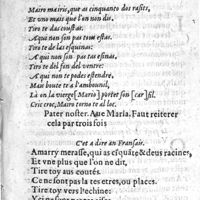 Maire mairie, que as cinquanto dos rasits,
Et vno mais que l'on non dit.
Tiro te das constats.
A qui non son pas tous estat.
Tiro te de las esquinas:
A qui non son pas tas esinas.
Tiro te del fin del ventre:
A qui non te podes estendre,
Mais boute te a l'ambounil,
Là on la viergo (Mario) portet son (car) fil.
Cric croc, Mairo torno te al loc.
Pater noster. Aue Maria. Faut reiterer
cela par trois fois
C'et a dire an Fransais.
Amarry merasse, qui as cinquate & deus racines,
Et vne plus que l'on ne dit,
Tire toy aus coutés.
Ce ne sont pas la tes etres, ou places.
Tire toy vers l'echine: